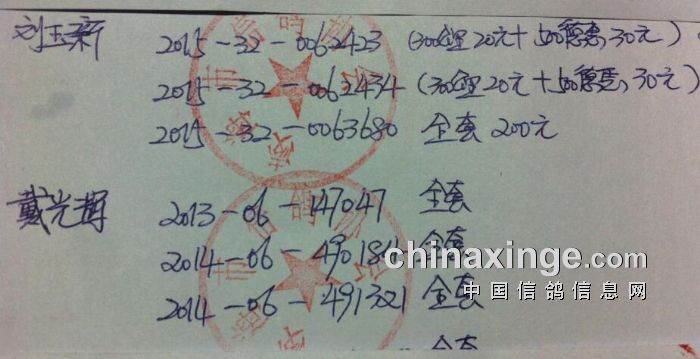 刘玉新 2015-32-0062423 (300公里20元+500 30元)
2015-32-0062434 (300公里20元+500 30元)
2015-32-0063680 全套 200元
戴光辉 2013-06-147047 全套
2014-06-490184 全套
chinaxinge.com
中国信鸽信息网
2014-06-491321 全套
全套